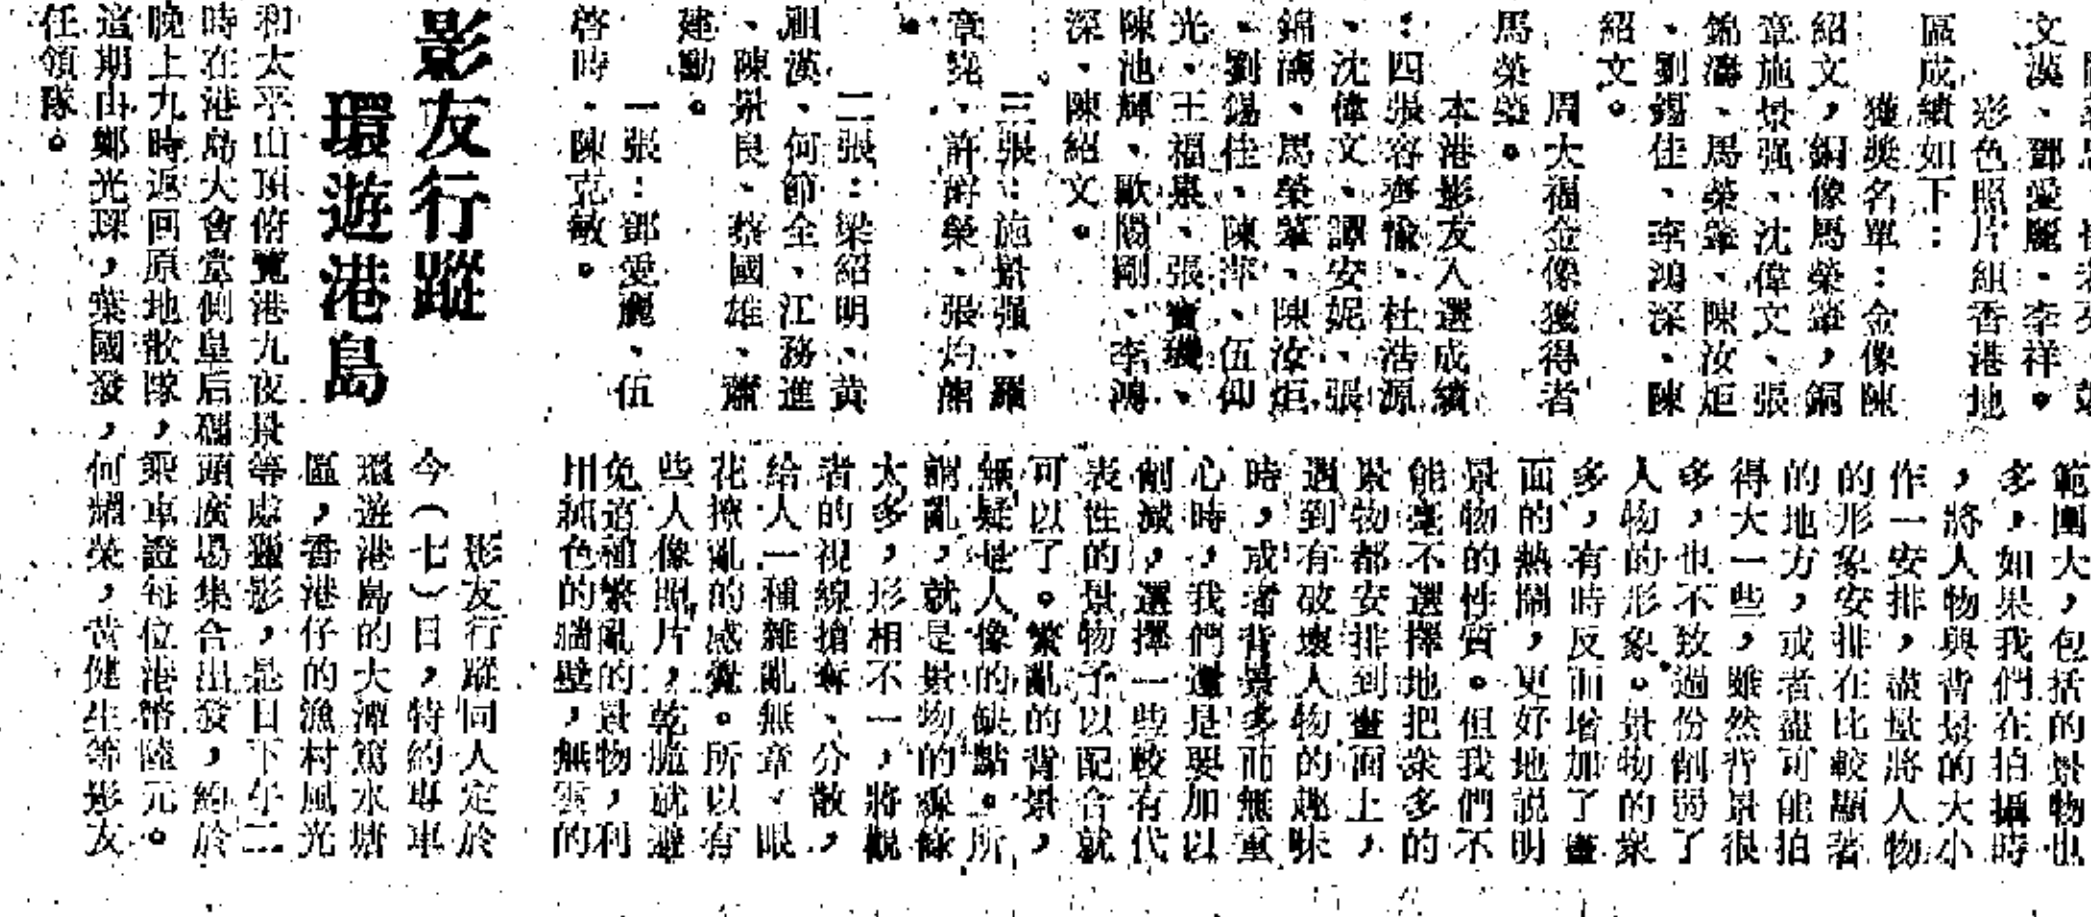 文漢、鄧愛麗、李祥。
彩色照片組香港地
區成績如下:
獲獎名單:金像陳
紹文,銅像馬榮肇,銅
章施景强、沈偉文、張
錦濤、馬榮肇、陳汝炬
、劉錫佳、李鴻深、陳
紹文。
周大福金像獲得者
馬榮肇。
本港影友入選成績
:四張容齊愉、杜浩源
、沈偉文、譚安妮、張
錦濤、馬榮肇、陳汝炬
、劉錫佳、陳萍、伍仰
光、王福、張寶璣、
陳池輝、歐陽剛、李鴻
深、陳紹文。
三張:施景强、羅
章堯、許爵榮、張灼蘭
。
二張:梁紹明、黃
祖漢、何節全、江務進
、陳景良、蔡國雄、蕭
建勳。
一張:鄧愛麗、伍
啓時、陳克敏。
範圍大,包括的景物也
多,如果我們在拍攝時
,將人物與背景的大小
作一安排,盡量將人物
的形象安排在比較顯著
的地方,或者盡可能拍
得大一些,雖然背景很
多,也不致過份削弱了
人物的形象。景物的衆
多,有時反而增加了畫
面的熱鬧,更好地説明
景物的性質。但我們不
能毫不選擇地把衆多的
景物都安排到畫面上,
遇到有破壞人物的趣味
時,或者背景多而無重
心時,我們還是要加以
削減,選擇一些較有代
表性的景物予以配合就
可以了。繁亂的背景,
無疑是人像的缺點。所
謂亂,就是景物的線條
太多,形相不一,將觀
者的視線搶奪、分散,
給人一種雜亂無章、眼
花撩亂的感覺。所以有
些人像照片,乾脆就避
免這種繁亂的景物,利
用純色的牆壁,無雲的
影友行蹤
環遊港島
影友行蹤同人定於
今(七)日,特約專車
環遊港島的大潭篤水塘
區,香港仔的漁村風光
和太平山頂俯覽港九夜景等處獵影,是日下午二
時在港島大會堂側皇后碼頭廣場集合出發,約於
晚上九時返回原地散隊,乘車證每位港幣陸元。
這期由鄭光琛,葉國發,何耀榮,黃健生等影友
任領隊。